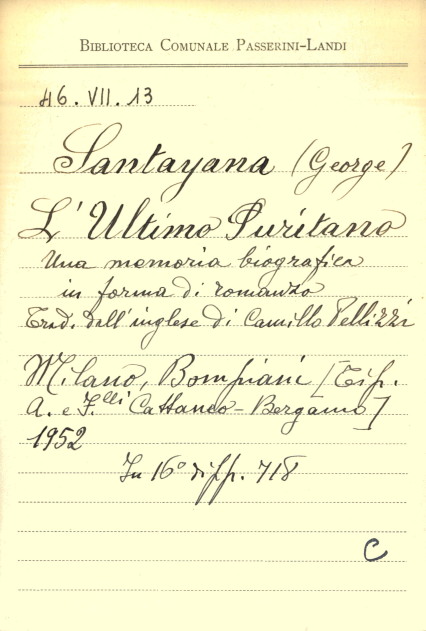 BIBLIOTECA COMUNALE PASSERINI-LANDI
46. VII. 13
Santayana (George)
L'Ultimo Puritano
Una memoria biografica
in forma di romanzo
Trad. dall'inglese di Camillo Pellizzi
Milano, Bompiani [Tip.
A. e F.lli Cattaneo - Bergamo]
1952
In 16° di pp. 718
C